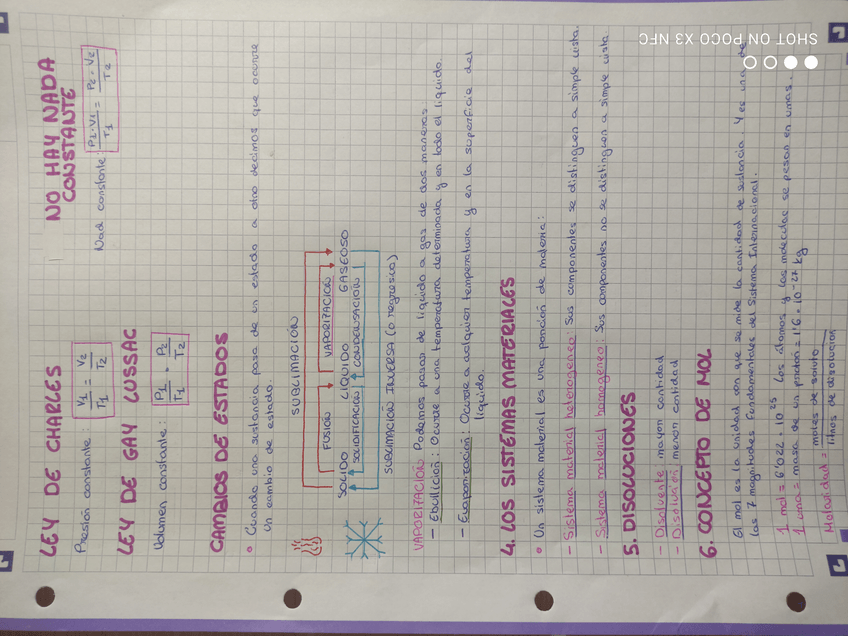 LEY DE CHARLES
NO HAY NADA
CONSTANTE
Presión constante: V1/T1 = V2/T2
Nada constante: P1·V1/T1 = P2·V2/T2
LEY DE GAY LUSSAC
Volumen constante: P1/T1 = P2/T2
CAMBIOS DE ESTADOS
• Cuando una sustancia pasa de un estado a otro decimos que ocurre
un cambio de estado.
SUBLIMACIÓN
FUSIÓN VAPORIZACIÓN
SÓLIDO LÍQUIDO GASEOSO
SOLIDIFICACIÓN CONDENSACIÓN
SUBLIMACIÓN INVERSA (O REGRESIVA)
VAPORIZACIÓN: Podemos pasar de líquido a gas de dos maneras:
- Ebullición: Ocurre a una temperatura determinada y en todo el líquido.
- Evaporización: Ocurre a cualquier temperatura y en la superficie del
líquido.
4. LOS SISTEMAS MATERIALES
• Un sistema material es una porción de materia:
- Sistema material heterogéneo: Sus componentes se distinguen a simple vista.
- Sistema material homogéneo: Sus componentes no se distinguen a simple vista
5. DISOLUCIONES
- Disolvente: mayor cantidad
- Disolución: menor cantidad
6. CONCEPTO DE MOL
El mol es la unidad con que se mide la cantidad de sustancia y es una de
las 7 magnitudes fundamentales del Sistema Internacional.
1 mol = 6'022 · 10^23 Los átomos y las moléculas se pesan en umas.
1 uma = masa de un protón = 1'6 · 10^-27 kg
Molaridad = moles de soluto / litros de disolución
SHOT ON POCO X3 NFC